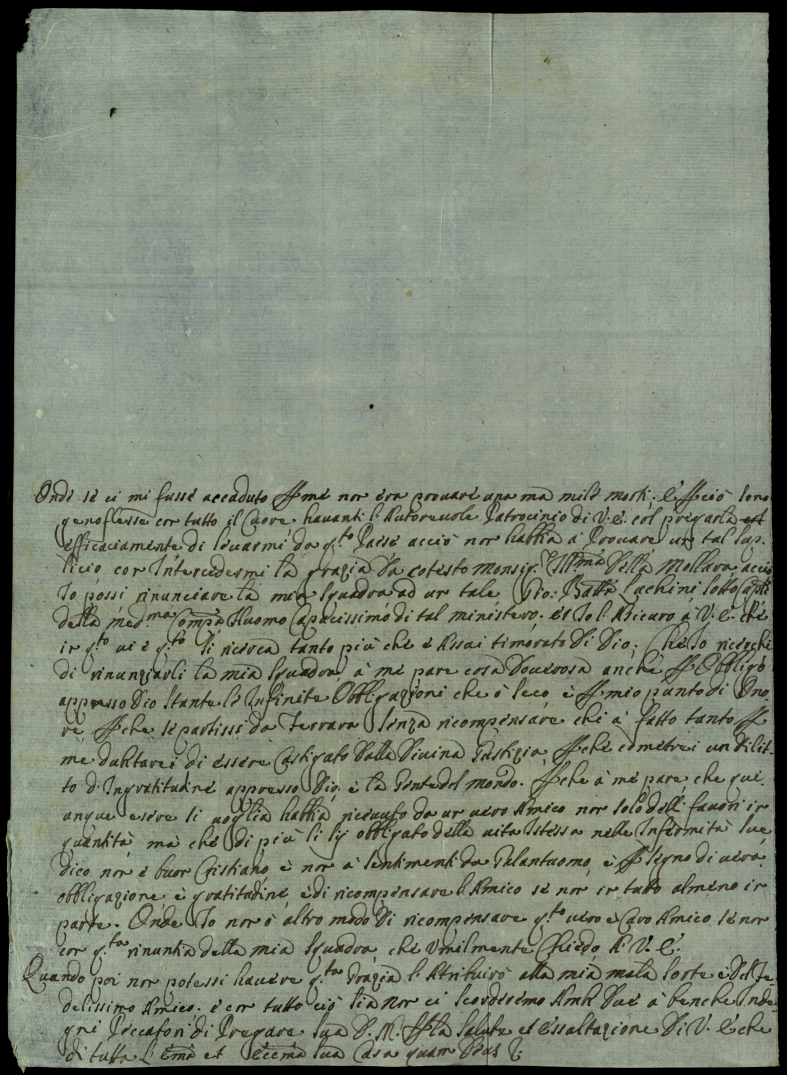 Onde sè ci mi fusse accaduto ꝑ me non era provare una ma mile morti. E ꝑ ciò sono
genoflesse con tutto il Cuore havanti l'Autorevole Patrocinio di V. E. col pregarla
efficaciamente di levarmi da q.to Paese acciò non habbia à Provare un tal sup-
licio con Intercedermi la grazia da cotesto Monsig.r Ill.mo Della Mollara acciò
Io possi rinunciare la mia squadra ad un tale Gio: Batta Luchini sotto
della med.ma Compa Huomo Capacissimo di tal ministero. et Io l'Asicuro à V. E. che
in q.to si ricerca tanto più che è Assai timorato Di Dio; Che Io
di rinunziarli la mia squadra à me pare cosa Doverosa anche ꝑ Obbligo
appresso Dio stante le Infinite Obbligazioni che ò seco è ꝑ mio punto di Ono-
re ꝑche se partissi da Ferrara senza ricompensare chi à fatto tanto ꝑ
me dubtarei di essere Castigato Dalla Divina Giustizia ꝑche cometrei un Dilit-
to d'Ingratitudine appresso Dio è la Gente del mondo. ꝑche à me pare che qui-
unque esere si voglia habbia ricevuto da un vero Amico non solo delli favori in
quantità ma che di più li sij obbligato della vita Istessa nelle Infermità sue
dico non è buon Cristiano è non à sentimenti da Galantuomo, è ꝑ segno di vera
obbligazione è gratitudine è di ricompensare l'Amico se non in tutto almeno in
parte. Onde Io non ò altro modo Di ricompensare q.to vero è Caro Amico se non
con q.ta rinuntia della mia squadra, che Umilmente Chiedo A V. E.
Quando poi non potessi havere q.ta Grazia l'Atribuirò alla mia mala sorte è Del Fe-
delissimo Amico. è con tutto ciò sia non ci scordaremo Amb Due à benche Inde-
gni Peccatori di Pregare sua D. M. ꝑ la Salute et Essaltazione Di V. E. è che
di tutta L'Ema et Eccema sua Casa quam Deus &: